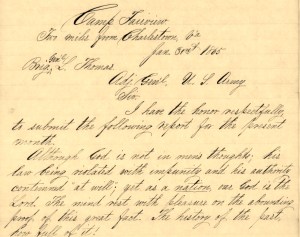 Camp Fairview
Two miles from Charlestown, Va
Jan 31st 1865
Brig. Genl. L. Thomas
Adj. Genl. U. S. Army
Sir.
I have the honor respectfully
to submit the following report for the present
month.
Although God is not in mens thoughts; his
law being violated with impunity and his authority
contemned at will; yet as a nation, our God is the
Lord. The mind rest with pleasure on the abounding
proof of this great fact. The history of the past,
how full of it!